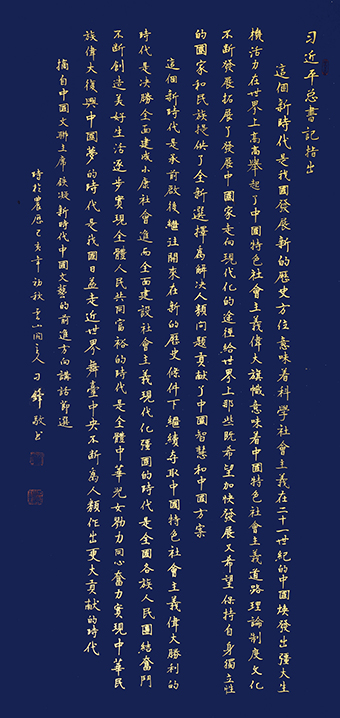 习近平总書記指出
這個新時代是我國發展新的歷史方位意味着科學社會主義在二十一世紀的中國煥發出强大生
機活力在世界上高高舉起了中國特色社會主義偉大旗幟意味着中國特色社會主義道路理論制度文化
不斷發展拓展了發展中國家走向現代化的途徑給世界上那些既希望加快發展又希望保持自身獨立性
的國家和民族提供了全新選擇爲解决人類問題貢献了中國智慧和中國方案
這個新時代是承前啟後繼往開來在新的歷史條件下繼續奪取中國特色社會主義偉大勝利的
時代是决勝全面建成小康社會進而全面建設社會主義現代化强國的時代是全國各族人民團結奮鬥
不斷創造美好生活逐步實現全體人民共同富裕的時代是全體中華兒女勠力同心奮力實現中華民
族偉大復興中國夢的時代是我國日益走近世界舞臺中央不斷爲人類作出更大貢献的時代
摘自中國文聯主席鉄凝新時代中國文藝的前進方向講話節選
時於農歷己亥年初秋